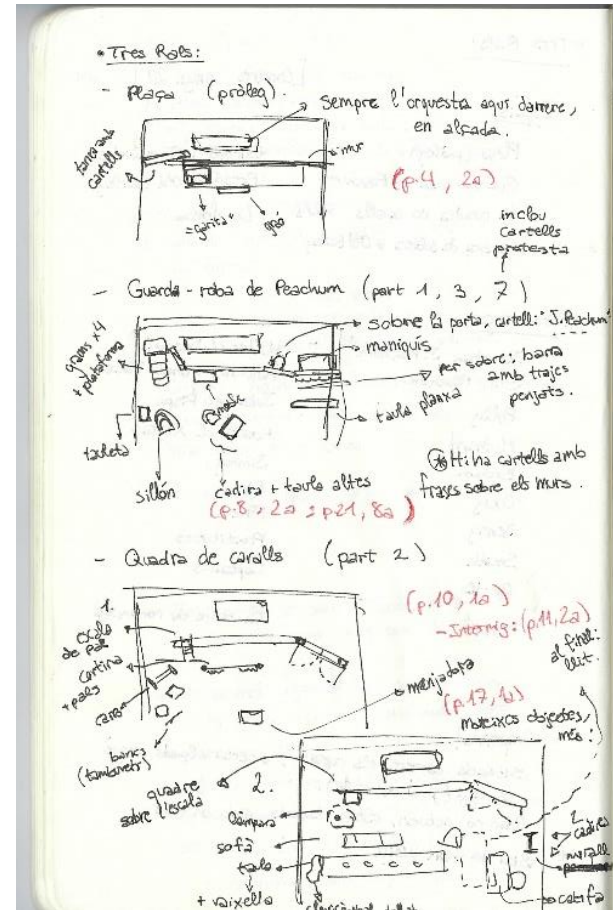 • Tres Rals:
- Plaça (pròleg).
sempre l'orquestra aquí darrere,
en alçada.
mur
tanca amb
cartells
(p.4, 2a)
"garita"
graó
inclou
cartells
protesta
- Guarda-roba de Peachum (part 1, 3, 7)
sobre la porta, cartell: "J. Peachum"
maniquís
graons x4
+ plataforma
per sobre: barra
amb trajes
penjats.
taula planxa
tauleta
sillón
cadira + taula altes
(p.8, 2a ; p21, 8a)
* Hi ha cartells amb
frases sobre els murs.
- Quadra de cavalls (part 2)
1.
escala
de pal
cortina
+ pals
(p.10, 1a)
- Intermig: (p.11, 2a)
al final:
llit.
menjadora
(p.17, 1a)
mateixos objectes,
més:
bancs
(tamborets)
quadre
sobre l'escala
2.
làmpara
sofà
taula
+ vaixella
2
cadires
mirall
catifa